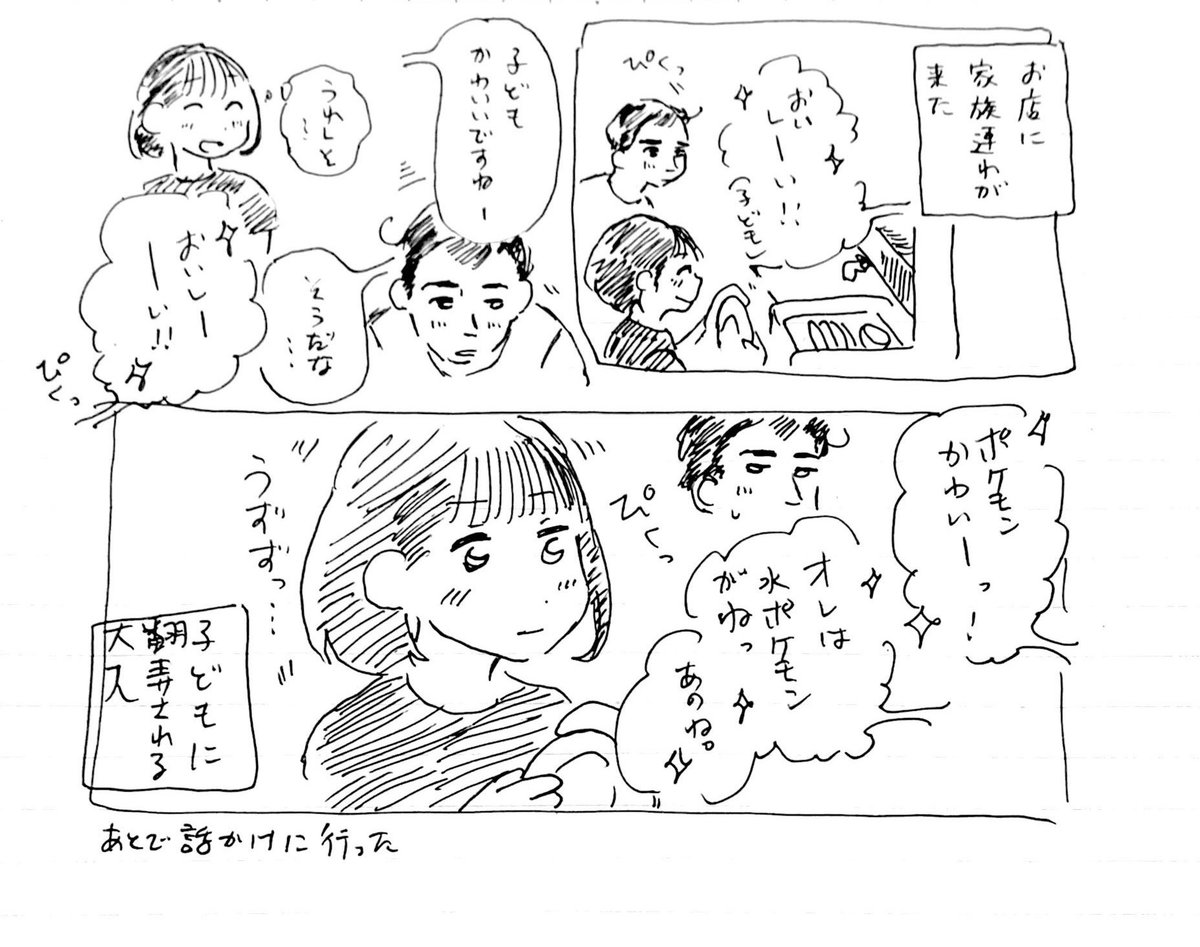 お店に
家族連れが
来た
おいしーい!!
(子ども)
ぴくっ
子ども
かわいいですねー
うれしと…
そうだな…
おいしーーい!!
ぴくっ
ポケモン
かわいーっ!
オレは
水ポケモン
がねっ
あのね。
ぴくっ
うずずっ…
子どもに
翻弄される
大人
あとで話かけに行った